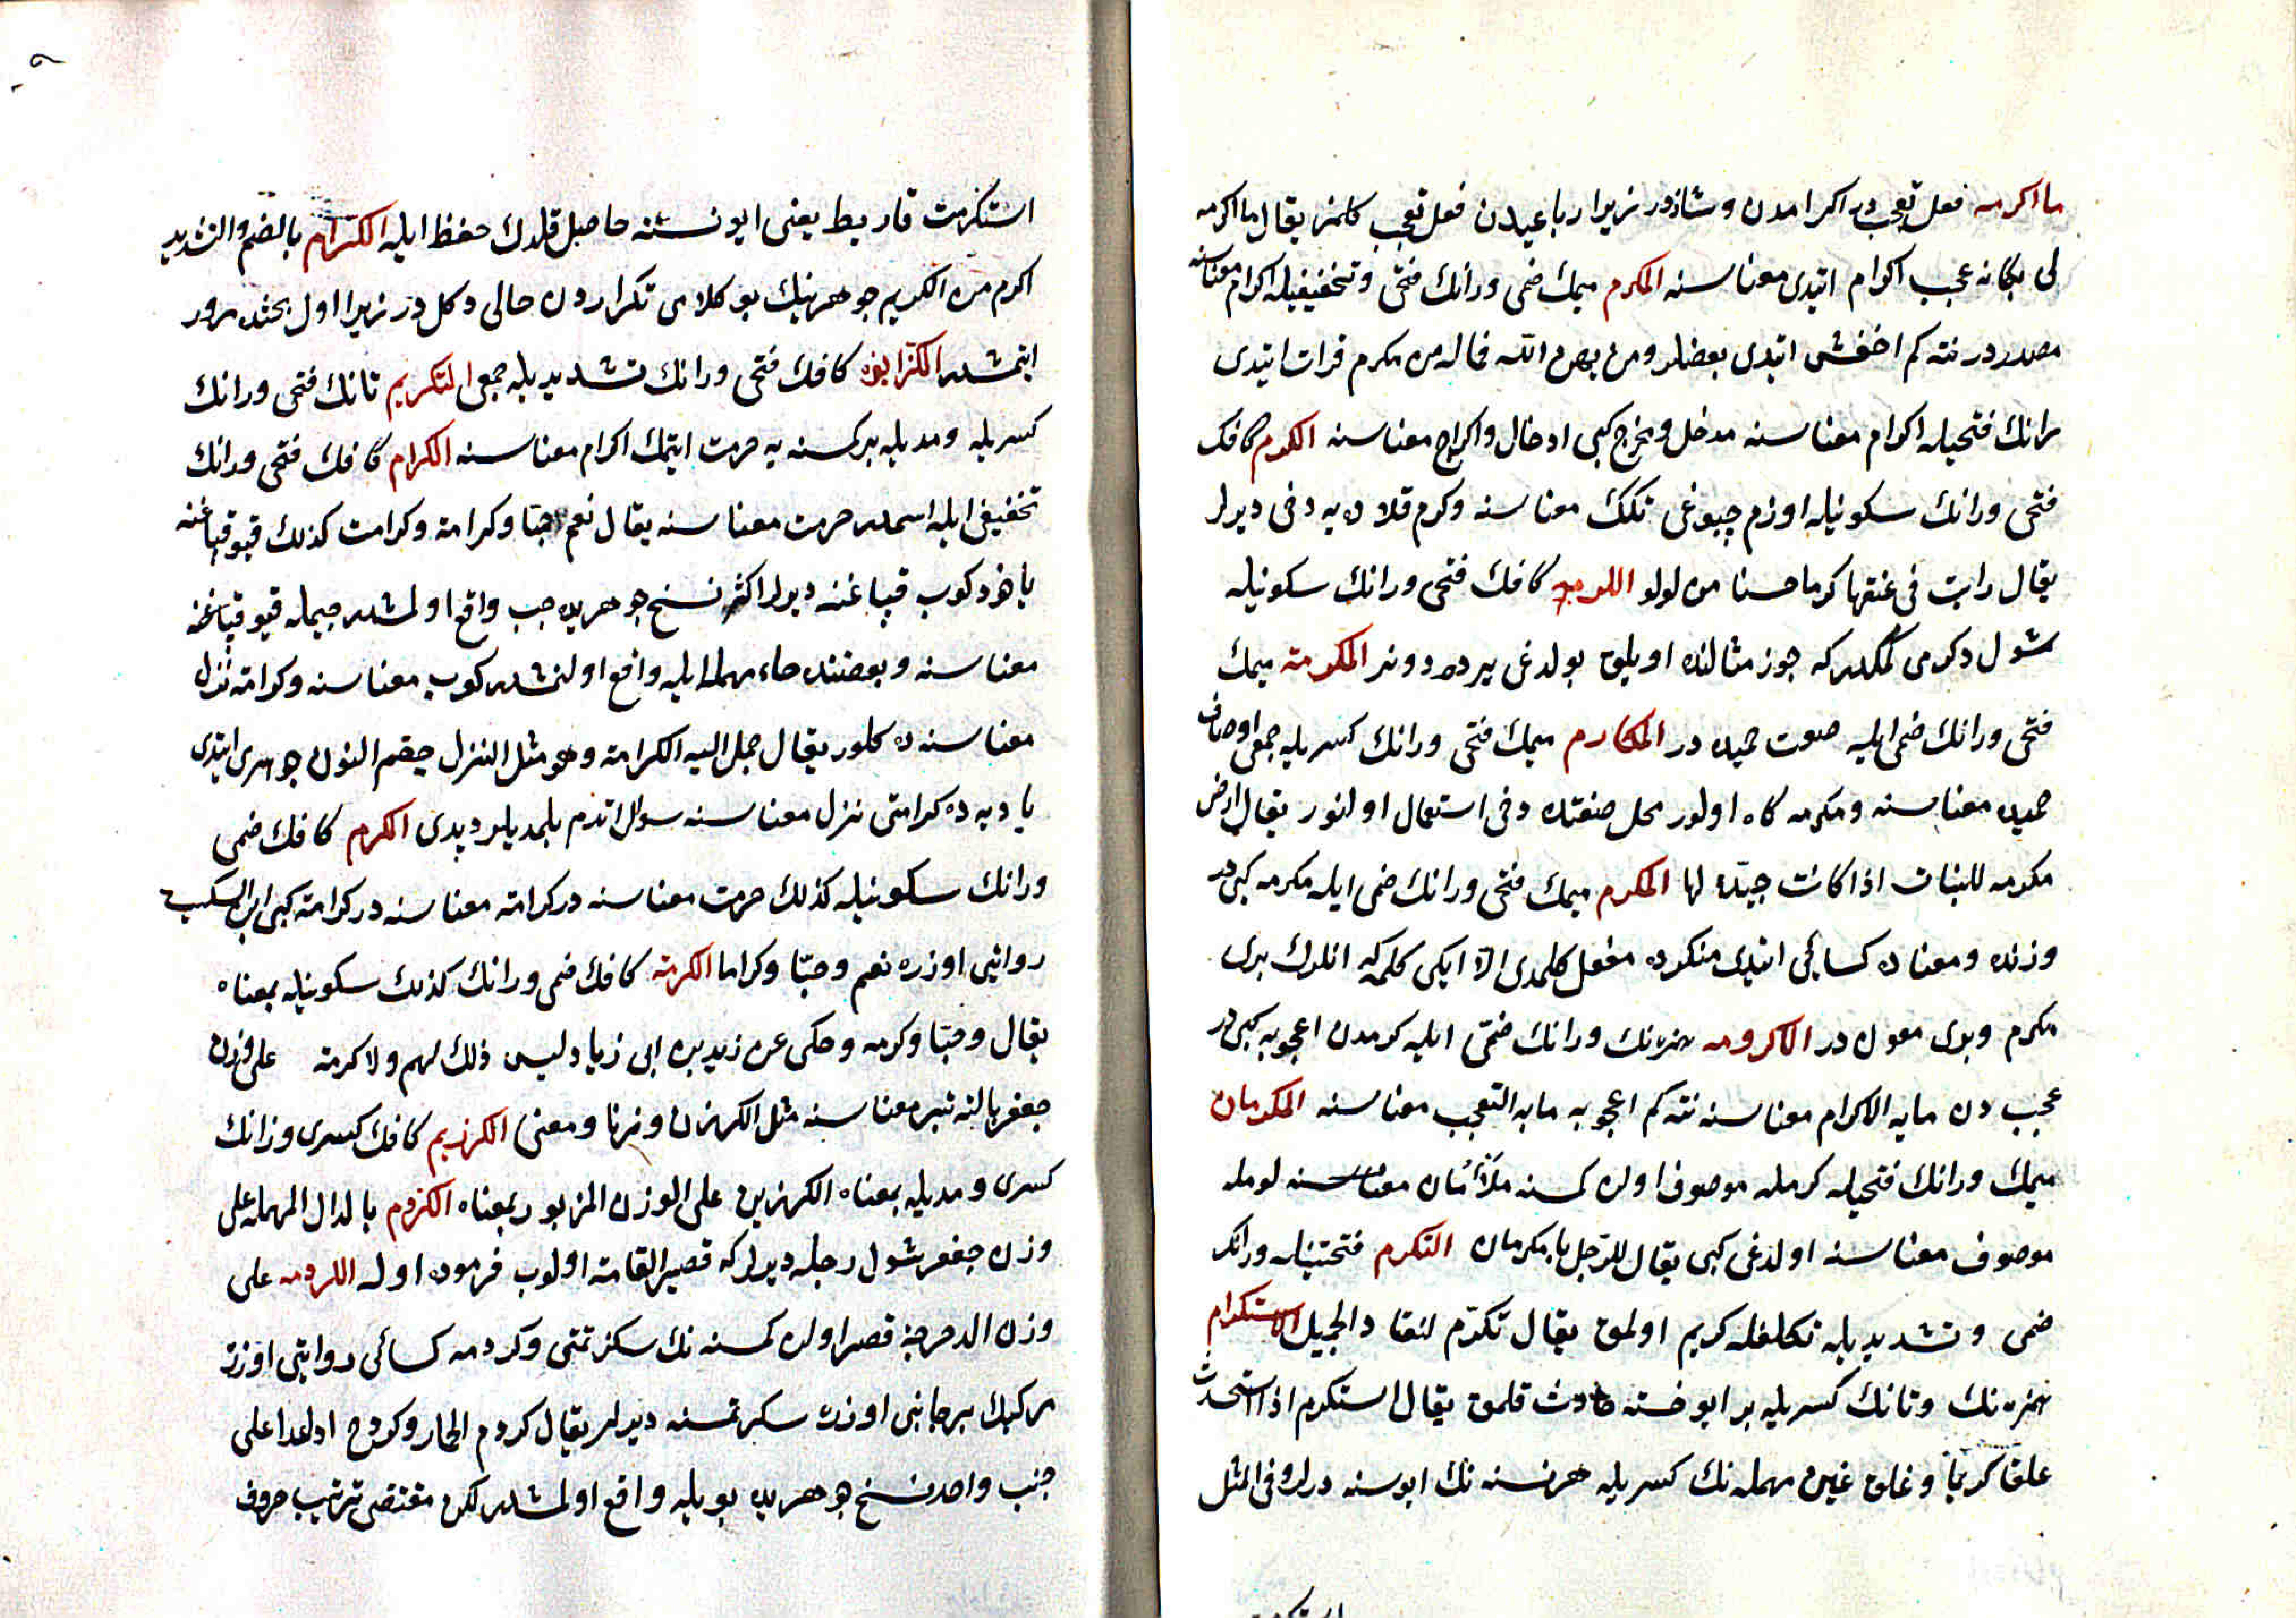 ما اكرمه فعل تعجبدر اكرامدن وشاذدر زيرا رباعيدن فعل تعجب كلمز يقال ما اكرمه
لى بكا نه عجب اكرام اتيدى معناسنه المكرم ميمك ضمى ورانك فتحى وتخفيفيله اكرام معناسنه
مصدردر نته كم اخفش اتيدى بعضلر ومن يهن الله فماله من مكرم قرات اتيدى
رانك فتحيله اكرام معناسنه مدخل ومخرج كبى ادخال واخراج معناسنه الكرم كافك
فتحى ورانك سكونيله اوزم چبوغى تكك معناسنه وكرم قلاده يه دخى ديرلر
يقال رايت فى عنقها كرما حسنا من لولو الكرمة كافك فتحى ورانك سكونيله
شول دكرمى كمكدر كه جوز مثالنده اويلوق بولدغى يرده دونر المكرمة ميمك
فتحى ورانك ضمى ايله صفت حميده در المكارم ميمك فتحى ورانك كسريله جمعى اوصاف
حميده معناسنه ومكرمه كاه اولور محل صنعتده دخى استعمال اولنور يقال ارض
مكرمه للنبات اذا كانت جيدة لها المكرم ميمك فتحى ورانك ضمى ايله مكرمه كبى در
وزنده ومعناده كسائى اتيدى مذكرده مفعل كلمدى الا ايكى كلمه كه انلرك برى
مكرم وبرى معون در الاكرومه همزه نك ورانك ضمى ايله كرمدن اعجوبه كبى در
عجب دن ما به الاكرام معناسنه نته كم اعجوبه ما به التعجب معناسنه المكرمان
ميمك ورانك فتحيله كرمله موصوف اولان كسنه ملأمان معناسنه لومله
موصوف معناسنه اولدغى كبى يقال للرجل يا مكرمان التكرم فتحتينله ورانك
ضمى وتشديديله تكلفله كريم اولمق يقال تكرم لنقا د الجميل الاستكرام
همزه نك وتانك كسريله بر ايو نسنه حادث قلمق يقال استكرم اذا استحدث
علقا كريما وعلق عين مهمله نك كسريله هر نسنه نك ايوسنه درلر وفى المثل
استكرمت فاربط يعنى ايو نسنه حاصل قلدك حفظ ايله الكرام بالضم والتشديد
اكرم من الكريم جوهرينك بو كلامى تكراردن خالى دكلدر زيرا اول بحثده مرور
ايتمشدر الكرامون كافك فتحى ورانك تشديديله جمعى التكريم تانك فتحى ورانك
كسريله ومديله بر كسنه يه حرمت ايتمك اكرام معناسنه الكرام كافك فتحى ورانك
تخفيفى ايله اسمدر حرمت معناسنه يقال نعم حبا وكرامة وكرامت كذلك قپو قپاغنه
ياخود كوب قپاغنه ديرلر اكثر نسخ جوهريده جب واقع اولمشدر جيمله قيو قپاغى
معناسنه وبعضنده حاء مهمله ايله واقع اولنمشدر كوب معناسنه وكرامة نزل
معناسنه ده كلور يقال حمل اليه الكرامة وهو مثل النزل بضم النون جوهرى اتيدى
باديه ده كرامتى نزل معناسنه سوال اتدم بلمديلر ديدى الكرم كافك ضمى
ورانك سكونيله كذلك حرمت معناسنه در كرامة معناسنه در كرامة كبى ابن السكيت
روايتى اوزره نعم وحبا وكراما الكرمة كافك ضمى ورانك كذلك سكونيله بمعناه
يقال وحبا وكرمه وحكى عن زيد بن ابى زياد ليس ذلك لهم ولا كرمة على وزن
جعفر بالته تبر معناسنه مثل الكرزن وزنا ومعنى الكرزيم كافك كسرى وزانك
كسرى ومديله بمعناه الكرزين على الوزن المزبور بمعناه الكردم بالدال المهمله على
وزن جعفر شول رجله ديرلر كه قصير القامة اولوب فرموده اوله الكردمه على
وزن الدحرجة قصير اولان كسنه نك سكرتمتى وكردمه كسائى روايتى اوزره
مركبك بر جانبى اوزره سكرتمسنه ديرلر يقال كردم الحمار وكردح اذا عدا على
جنب واحد نسخ جوهريده بويله واقع اولمشدر لكن مقتضى ترتيب حروف